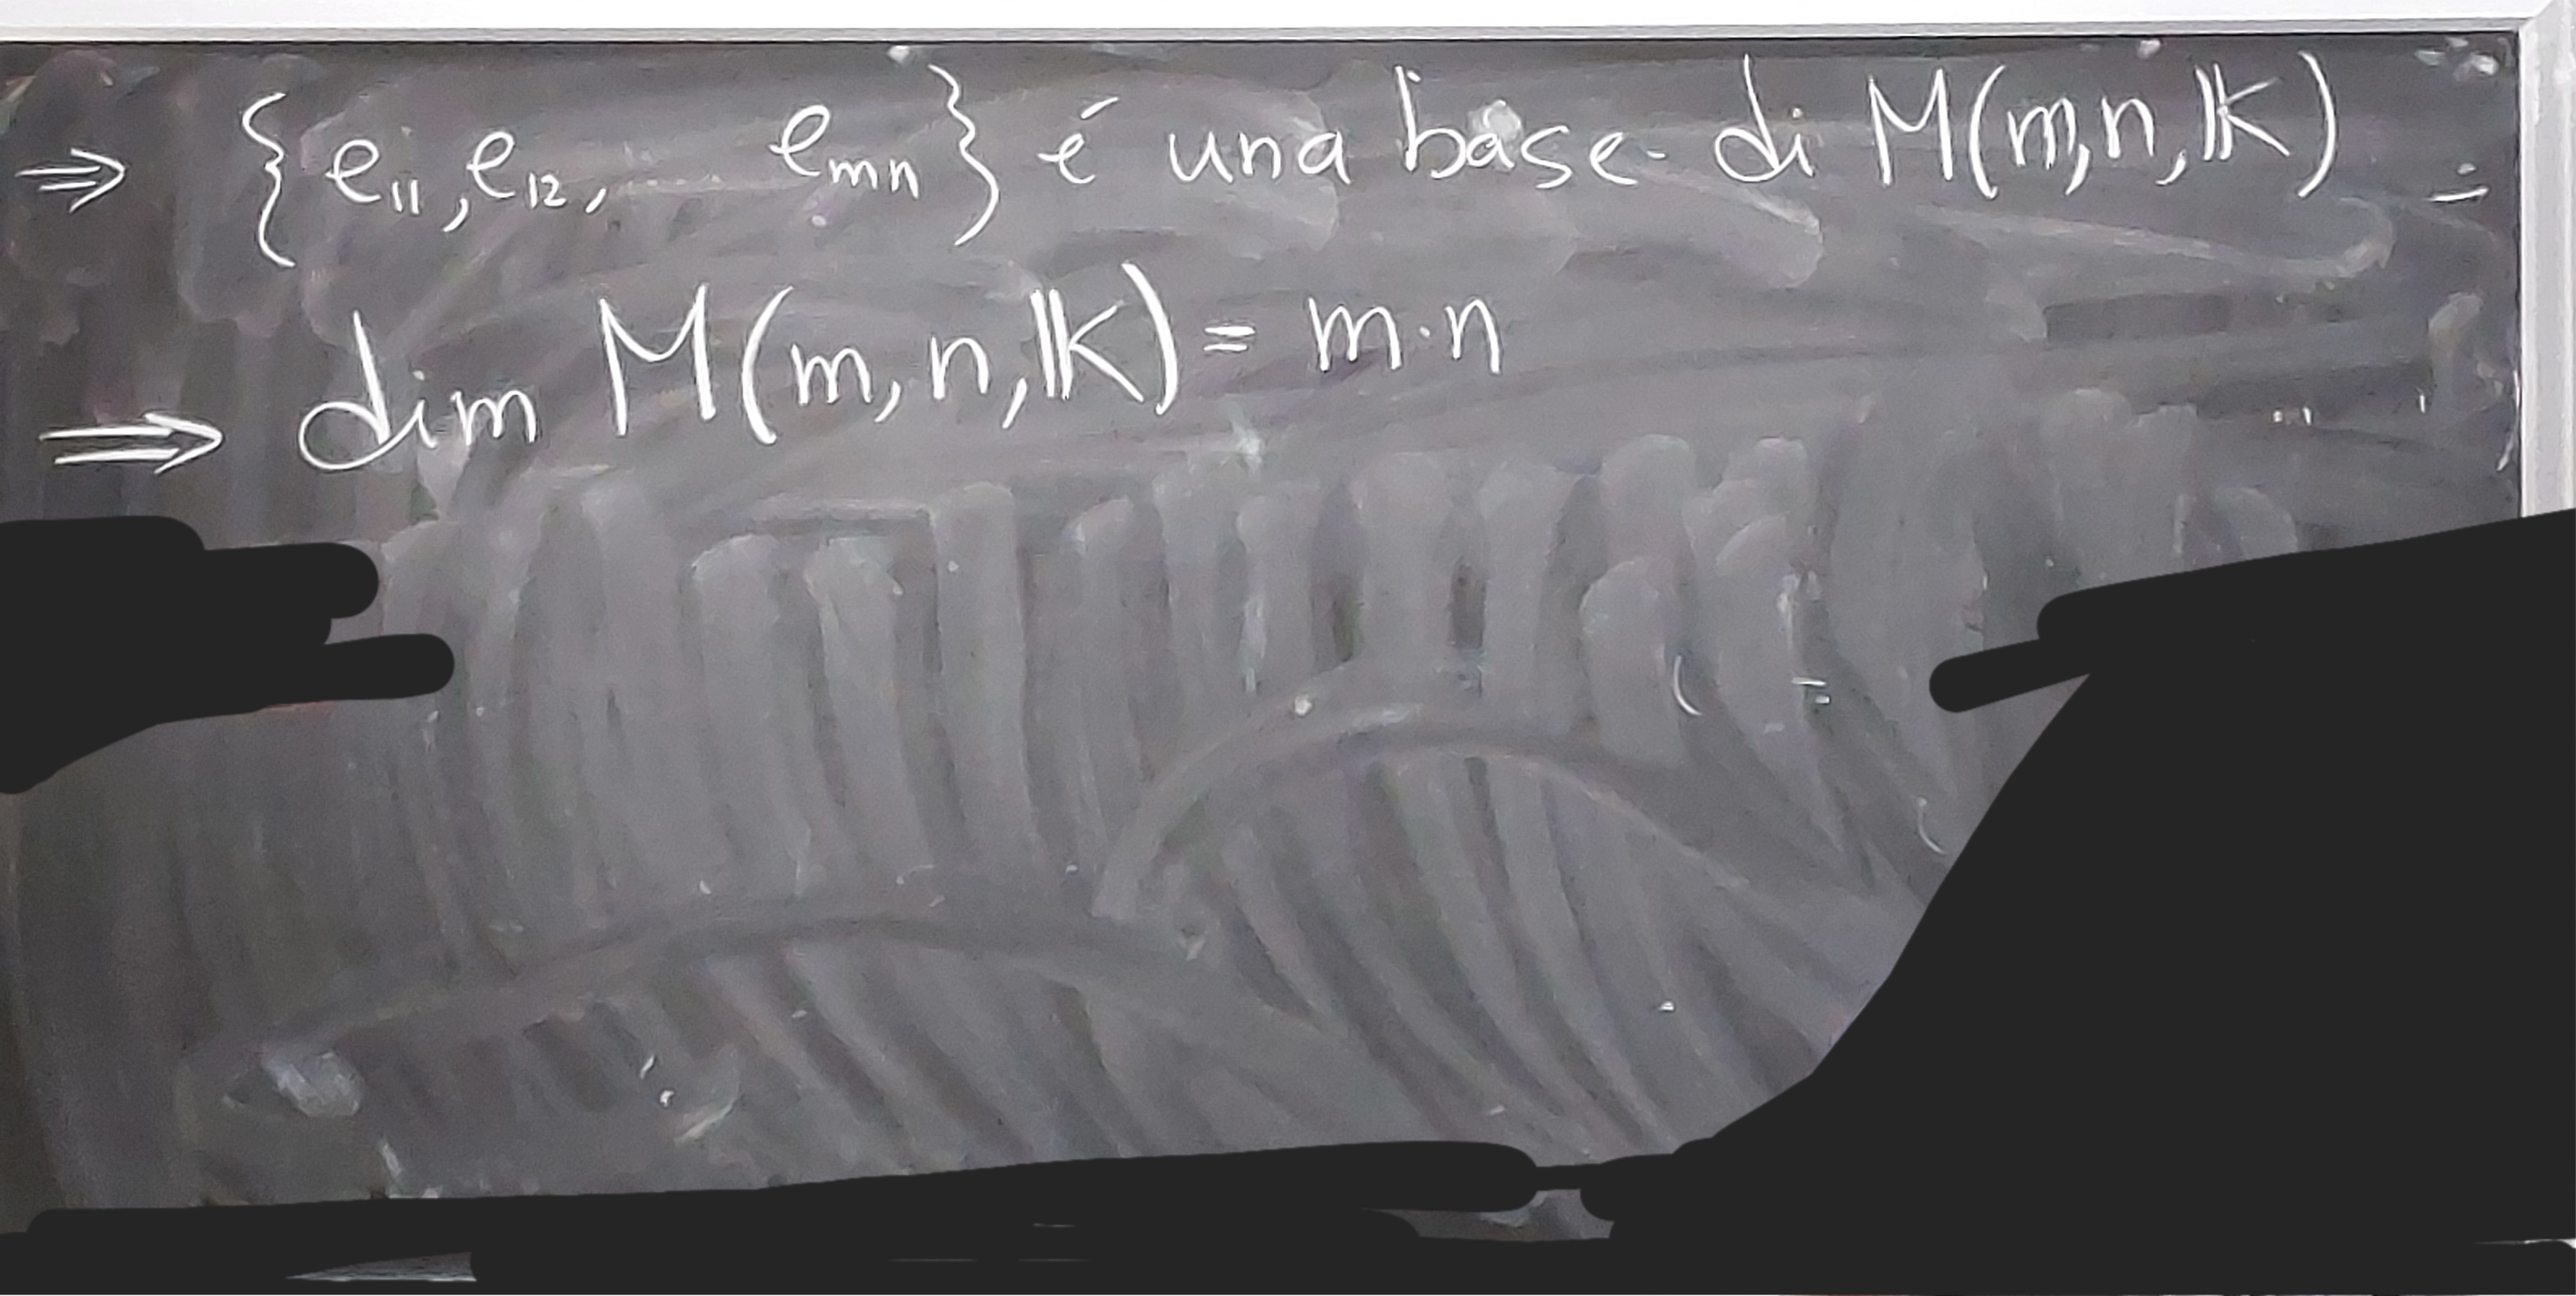 ⇒ {e₁₁, e₁₂, ..... eₘₙ} é una base di M(m,n,𝕂) =
⇒ dim M(m,n,𝕂) = m·n